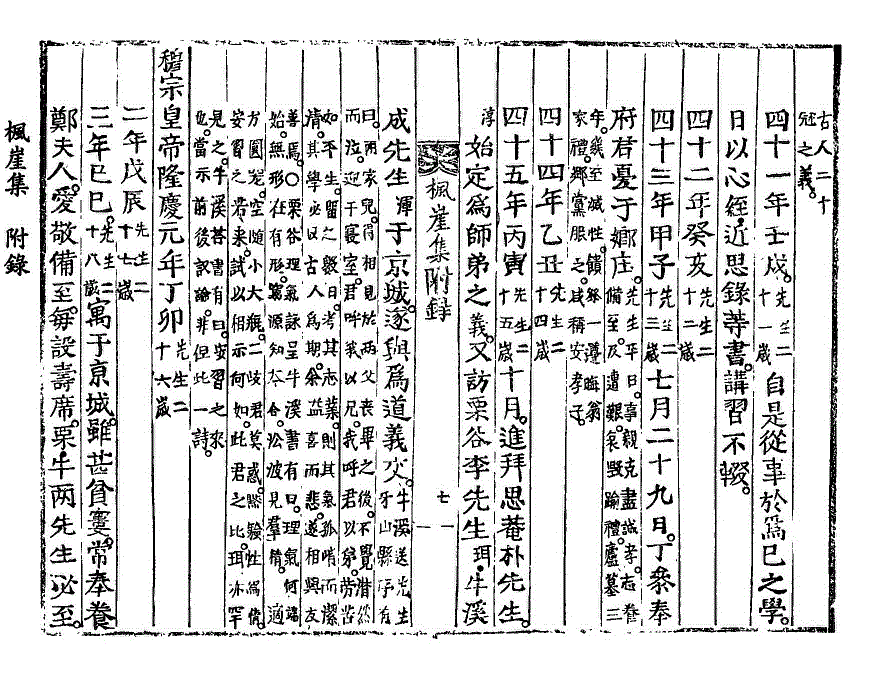 古人二十
冠之義。
四十一年壬戌。先生二十一歲 自是從事於爲己之學。
日以心經近思錄等書。講習不輟。
四十二年癸亥 先生二十二歲
四十三年甲子 先生二十三歲 七月二十九日。丁參奉
府君憂于鄕庄。先生平日。事親克盡誠孝。志養
備至。及遭艱。哀毀踰禮。廬墓三
年。幾至滅性。饋奠一遵晦翁
家禮。鄕黨服之。咸稱安孝子。
四十四年乙丑 先生二十四歲
四十五年丙寅 先生二十五歲 十月。進拜思菴朴先生
淳 始定爲師弟之義。又訪栗谷李先生珥,牛溪
楓崖集附錄 七
成先生渾于京城。遂與爲道義交。牛溪送先生
牙山縣序有
曰。兩家兒。得相見於兩父喪畢之後。不覺潸然
而泣。迎于寢室。君呼我以兄。我呼君以弟。勞苦
如平生。留之數日。考其志業。則其氣孤哨而潔
淸。其學必以古人爲期。余益喜而悲。遂相與友
善焉。○栗谷理氣詠呈牛溪書有曰。理氣何端
始。無形在有形。窮源知本合。沿波見羣情。適
方圓器。空隨小大甁。二岐君莫惑。默驗性爲情。
安習之若來。試以相示何如。此君之比。珥亦罕
見之。牛溪答書有曰。安習之來
也。當示前後詠論。非但此一詩。
穆宗皇帝隆慶元年丁卯 先生二十六歲
二年戊辰 先生二十七歲
三年己巳。先生二十八歲 寓于京城。雖甚貧窶。常奉養
鄭夫人。愛敬備至。每設壽席。栗牛兩先生必至。
楓崖集 附錄